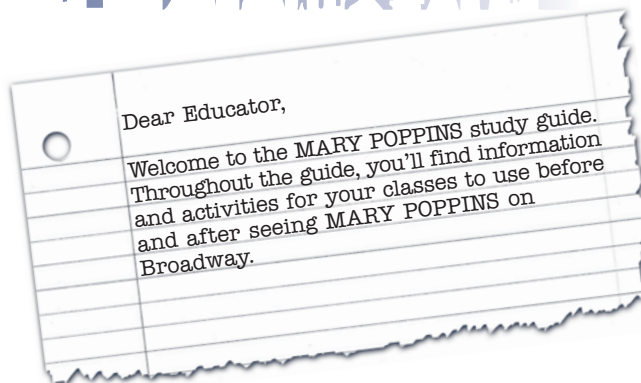 Dear Educator,
Welcome to the MARY POPPINS study guide.
Throughout the guide, you'll find information
and activities for your classes to use before
and after seeing MARY POPPINS on
Broadway.